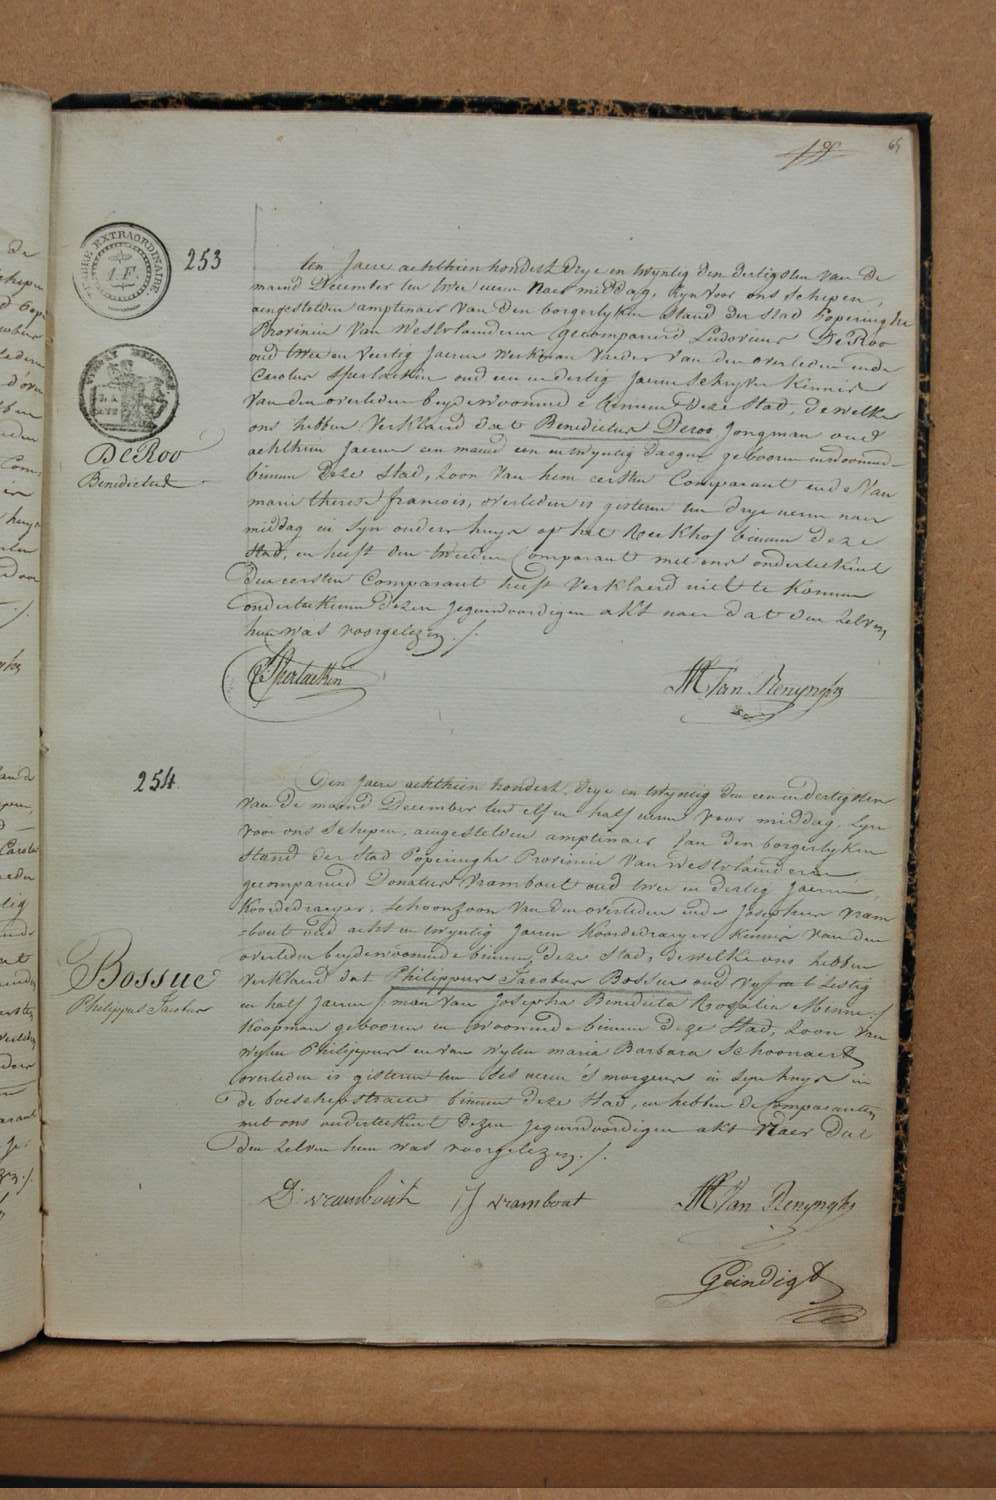 65
TIMBRE EXTRAORDINAIRE.
1.F.
253
ten Jaere achthien hondert drye en twyntig den dertigsten van de
maend December ten twee uren naer middag, zyn voor ons schepen,
aengestelden amptenaer van den borgerlyken stand der stad Poperinghe
Provincie van Westvlaenderen gecompareerd Ludovicus De Roo
oud twee en veertig Jaeren werkman vader van den overleden ende
Carolus Sterlaeken oud een en dertig Jaeren schryver kennis
van den overleden beyde woonende binnen deze stad, de welke
ons hebben verklaerd dat Benedictus Deroo Jongman oud
achthien Jaeren een maend een en twyntig daegen gebooren en woonende
binnen deze stad, zoon van hem eersten Comparant ende van
marie therese francois, overleden is gisteren ten drye uren naer
middag in zyn ouders huys op het Roe Khof binnen deze
stad, en heeft den tweeden Comparant met ons onderteekent
den eersten Comparant heeft verklaerd niet te konnen
onderteekenen dezen jegenwoordigen akt naer dat den zelven
hun was voorgelezen ./.
De Roo
Benedictus
C Sterlaeken
M Van Renynghe
254.
Den Jaere achthien hondert drye en twyntig den een en dertigsten
van de maend December ten elf en half uren voor middag zyn
voor ons schepen, aengestelden amptenaer van den borgerlyken
stand der stad Poperinghe Provincie van Westvlaenderen,
gecompareerd Donatus Vrambout oud twee en dertig Jaeren,
Koordedraeyer, schoonzoon van den overleden ende Josephus Vram
=bout oud acht en twyntig Jaeren Koordedraeyer kennis van den
overleden beyde woonende binnen deze stad, de welke ons hebben
verklaerd dat Philippus Jacobus Bossue oud vyf en t Sestig
en half Jaeren /: man van Josepha Benedicta Rosalia Menne./
Koopman gebooren en woonende binnen deze stad, zoon van
wylen Philippus en van wylen maria Barbara Schoonaert
overleden is gisteren ten ses uren 's morgens in zyn huys in
de boeschepstraete binnen deze stad, en hebben de Comparanten
met ons onderteekent dezen jegenwoordigen akt naer dat
den zelven hun was voorgelezen ./.
Bossue
Philippus Jacobus
D. vrambout
J vrambout
M Van Renynghe
Geindigt